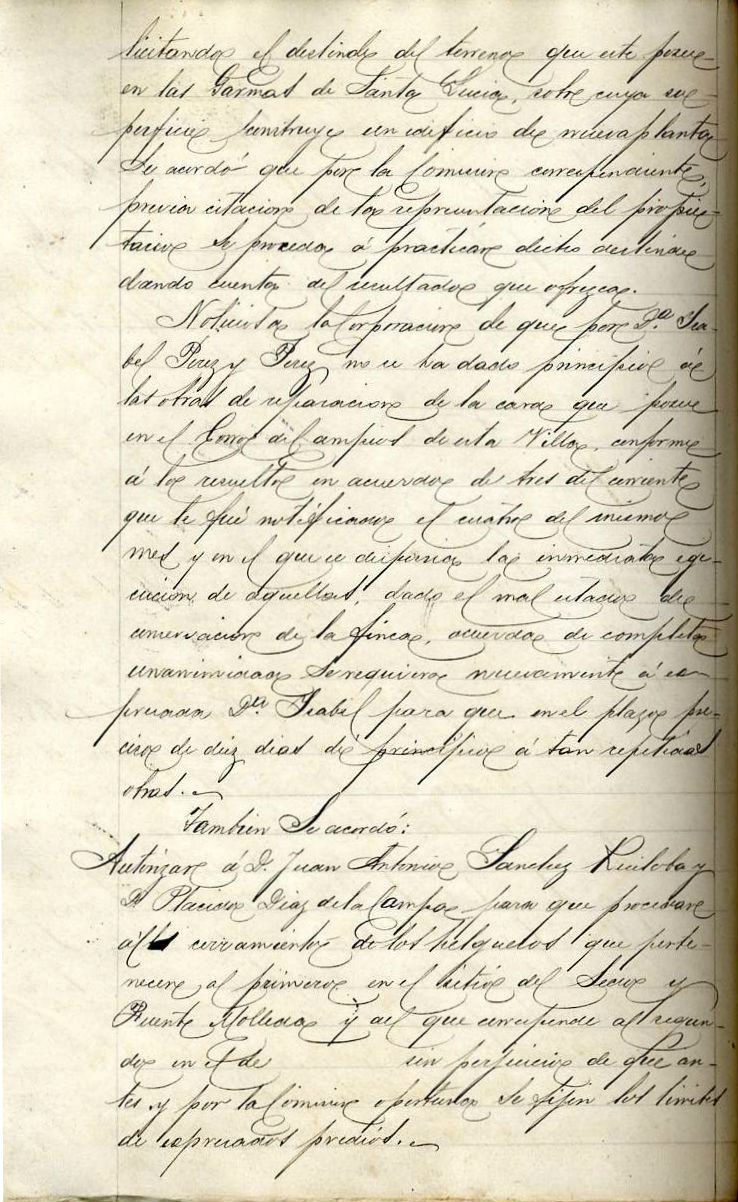 licitando el deslinde del terreno que este posee
en las Garmas de Santa Lucia, sobre cuya su-
perficie construye un edificio de nueva planta
Se acordó que por la Comision correspondiente,
previa citacion de la representacion del propie-
tario se proceda á practicar dicho deslinde
dando cuenta del resultado que ofrezca.
Noticiosa la Corporacion de que por D.ª Isa-
bel Perez y Perez no se ha dado principio á
las obras de reparacion de la casa que posee
en el Corro del campios de esta Villa, conforme
á lo resuelto en acuerdo de tres del corriente
que le fué notificado el cuatro del mismo
mes y en el que se disponia la inmediata eje-
cucion de aquellas, dado el mal estado de
conservacion de la finca, acuerda de completa
unanimidad se requiera nuevamente á es-
presada D.ª Isabel para que en el plazo pre-
ciso de diez dias dé principio á tan repetidas
obras.
Tambien Se acordó:
Autorizar á D. Juan Antonio Sanchez Ruiloba y
D. Placido Diaz de la Campa para que procedan
al cerramiento de los helgueros que perte-
necen al primero en el sitio del Sedo y
Puente Molleda y al que corresponde al segun-
do en el de sin perjuicio de que an-
tes y por la Comision oportuna se fijen los limites
de espresados predios.